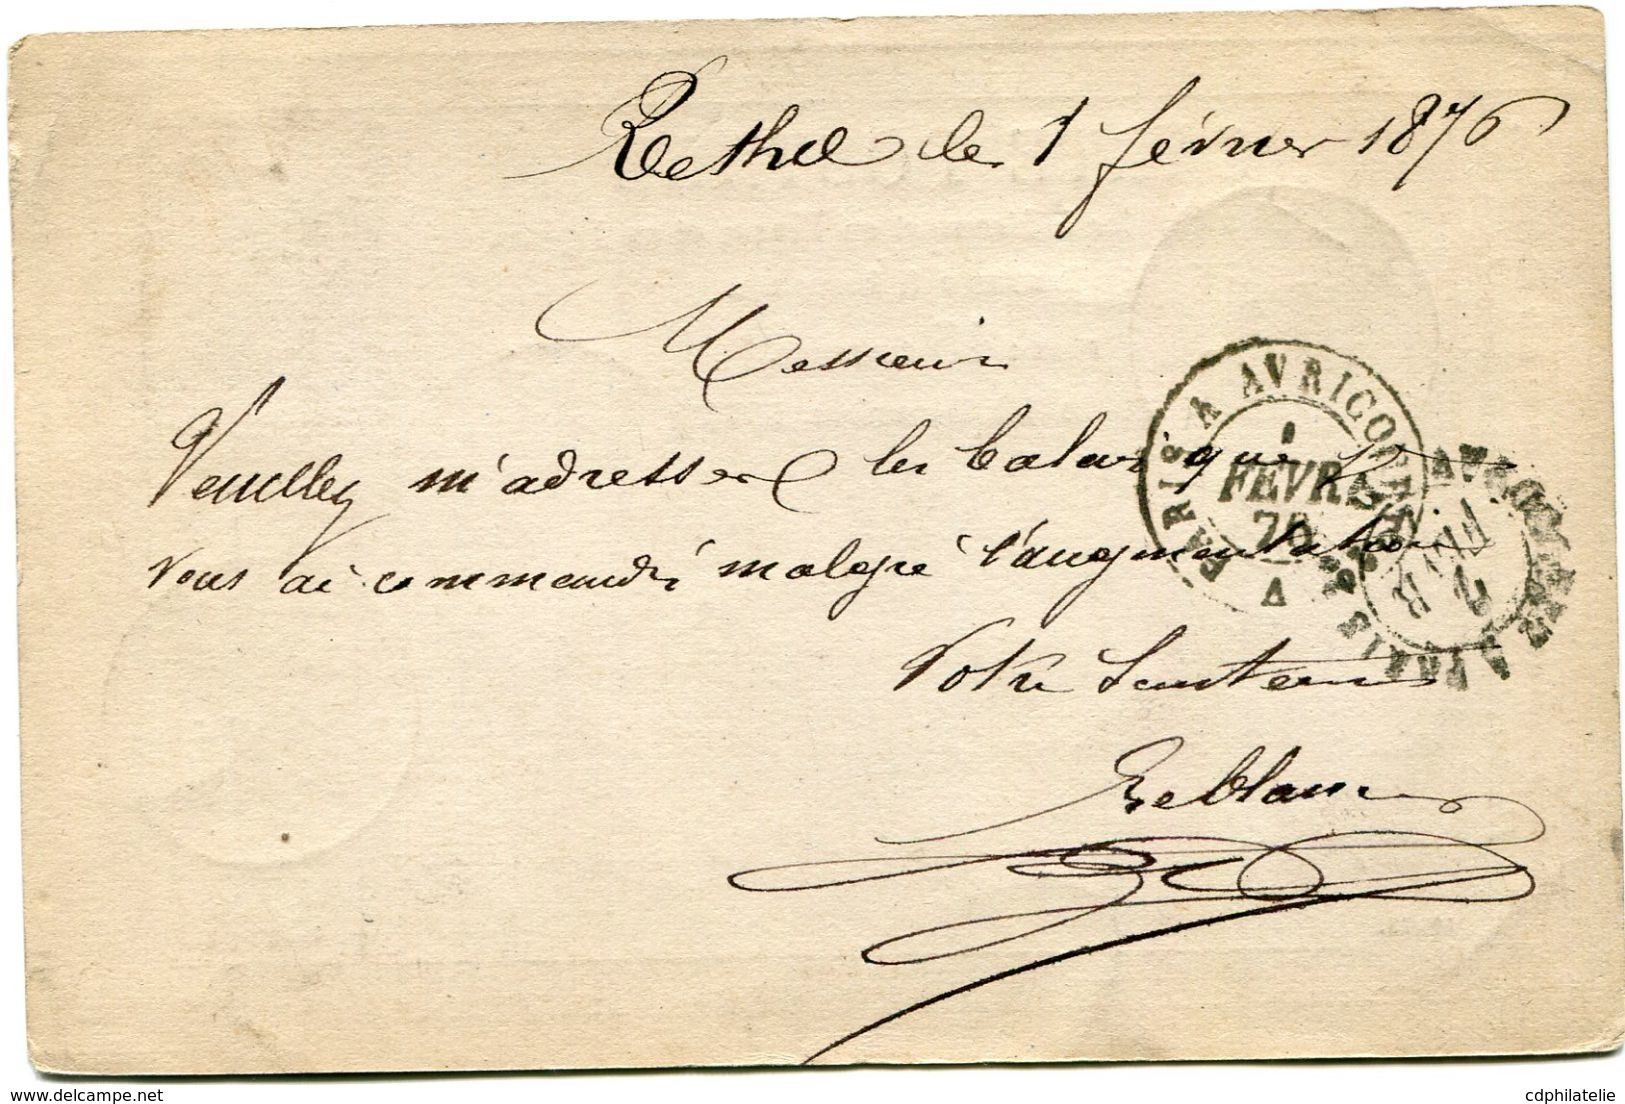 Rethel le 1 février 1876
Messieurs
Veuillez m'adresser les balais que je
vous ai commandé malgré l'augmentation
Votre Serviteur
Leblanc
PARIS A AVRICOURT
1
FEVR
76
A
FEVR
delcampe.net
cdphilatelie